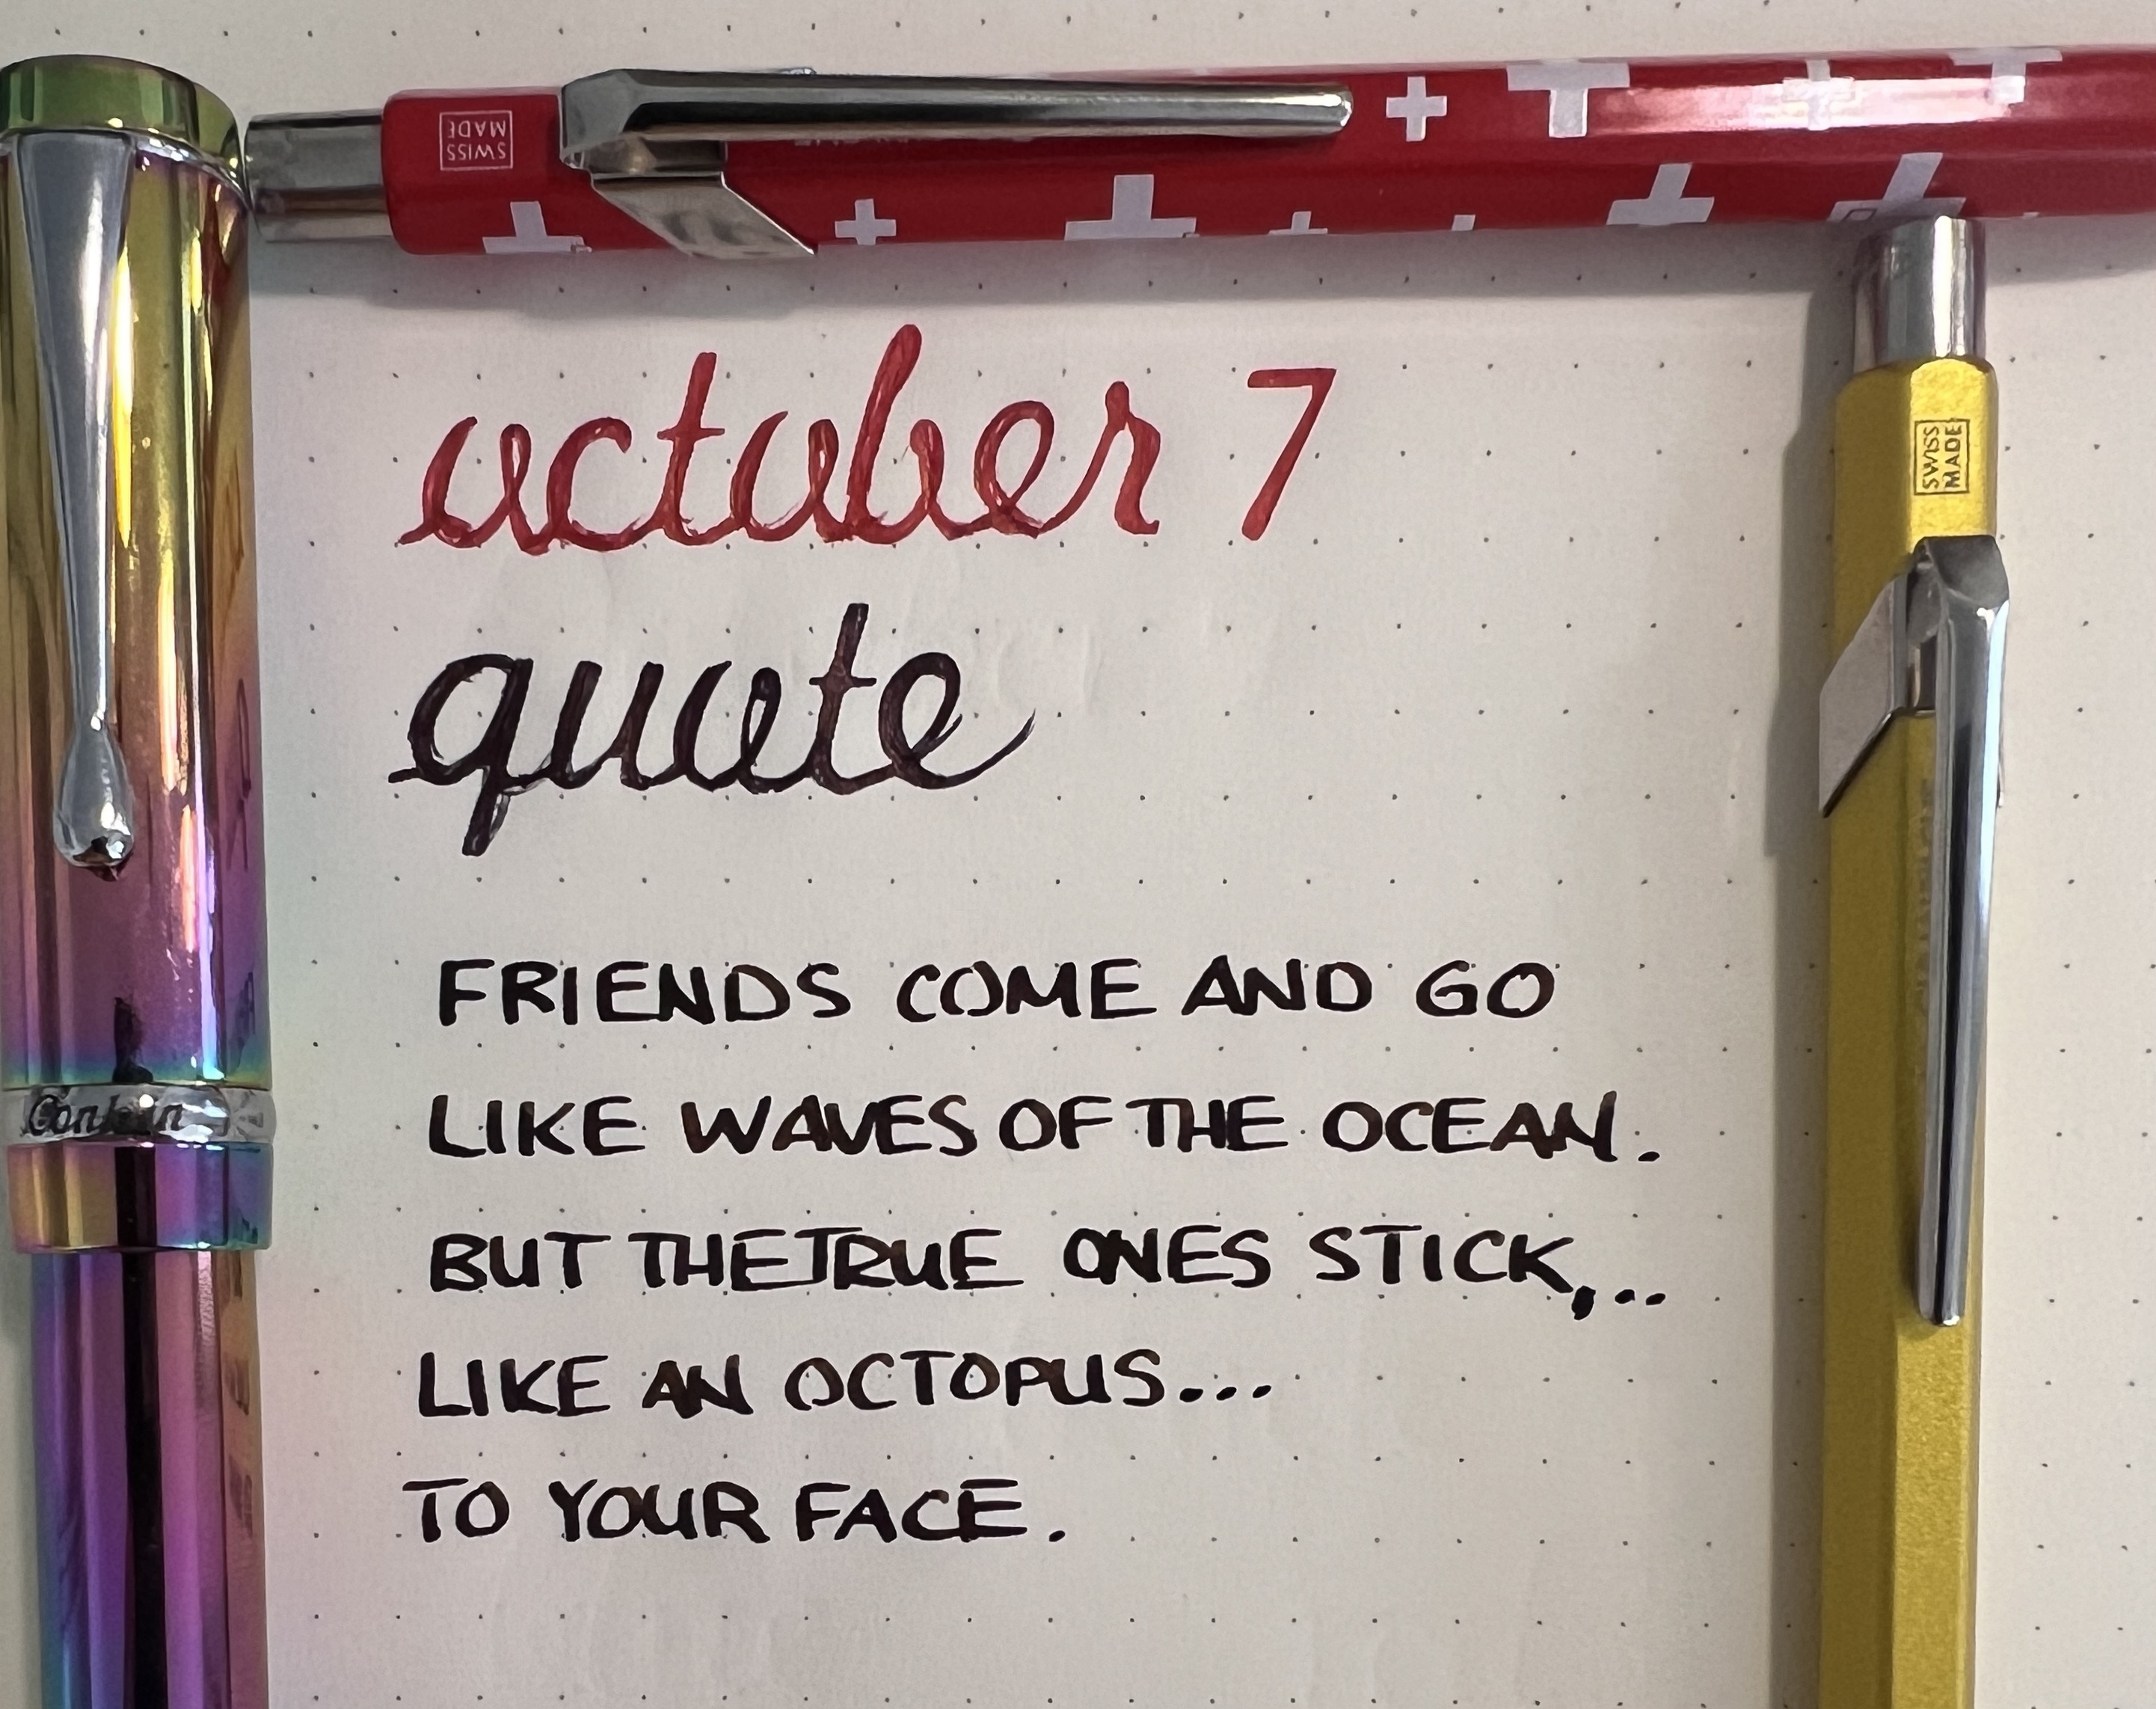 SWISS
MADE
october 7
SWISS
MADE
quote
FRIENDS COME AND GO
LIKE WAVES OF THE OCEAN.
Conklin
BUT THE TRUE ONES STICK,..
LIKE AN OCTOPUS...
TO YOUR FACE.